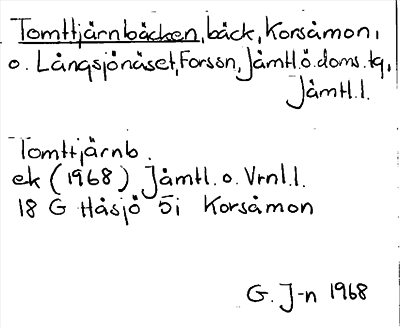 Tomttjärnbäcken, bäck, Korsåmon,
o. Långsjönäset, Forssn, Jämtl.ö.doms.tg,
Jämtl.l.
Tomttjärnb.
ek (1968) Jämtl. o. Vrnl.l.
18 G Håsjö 5i Korsåmon
G. J-n 1968